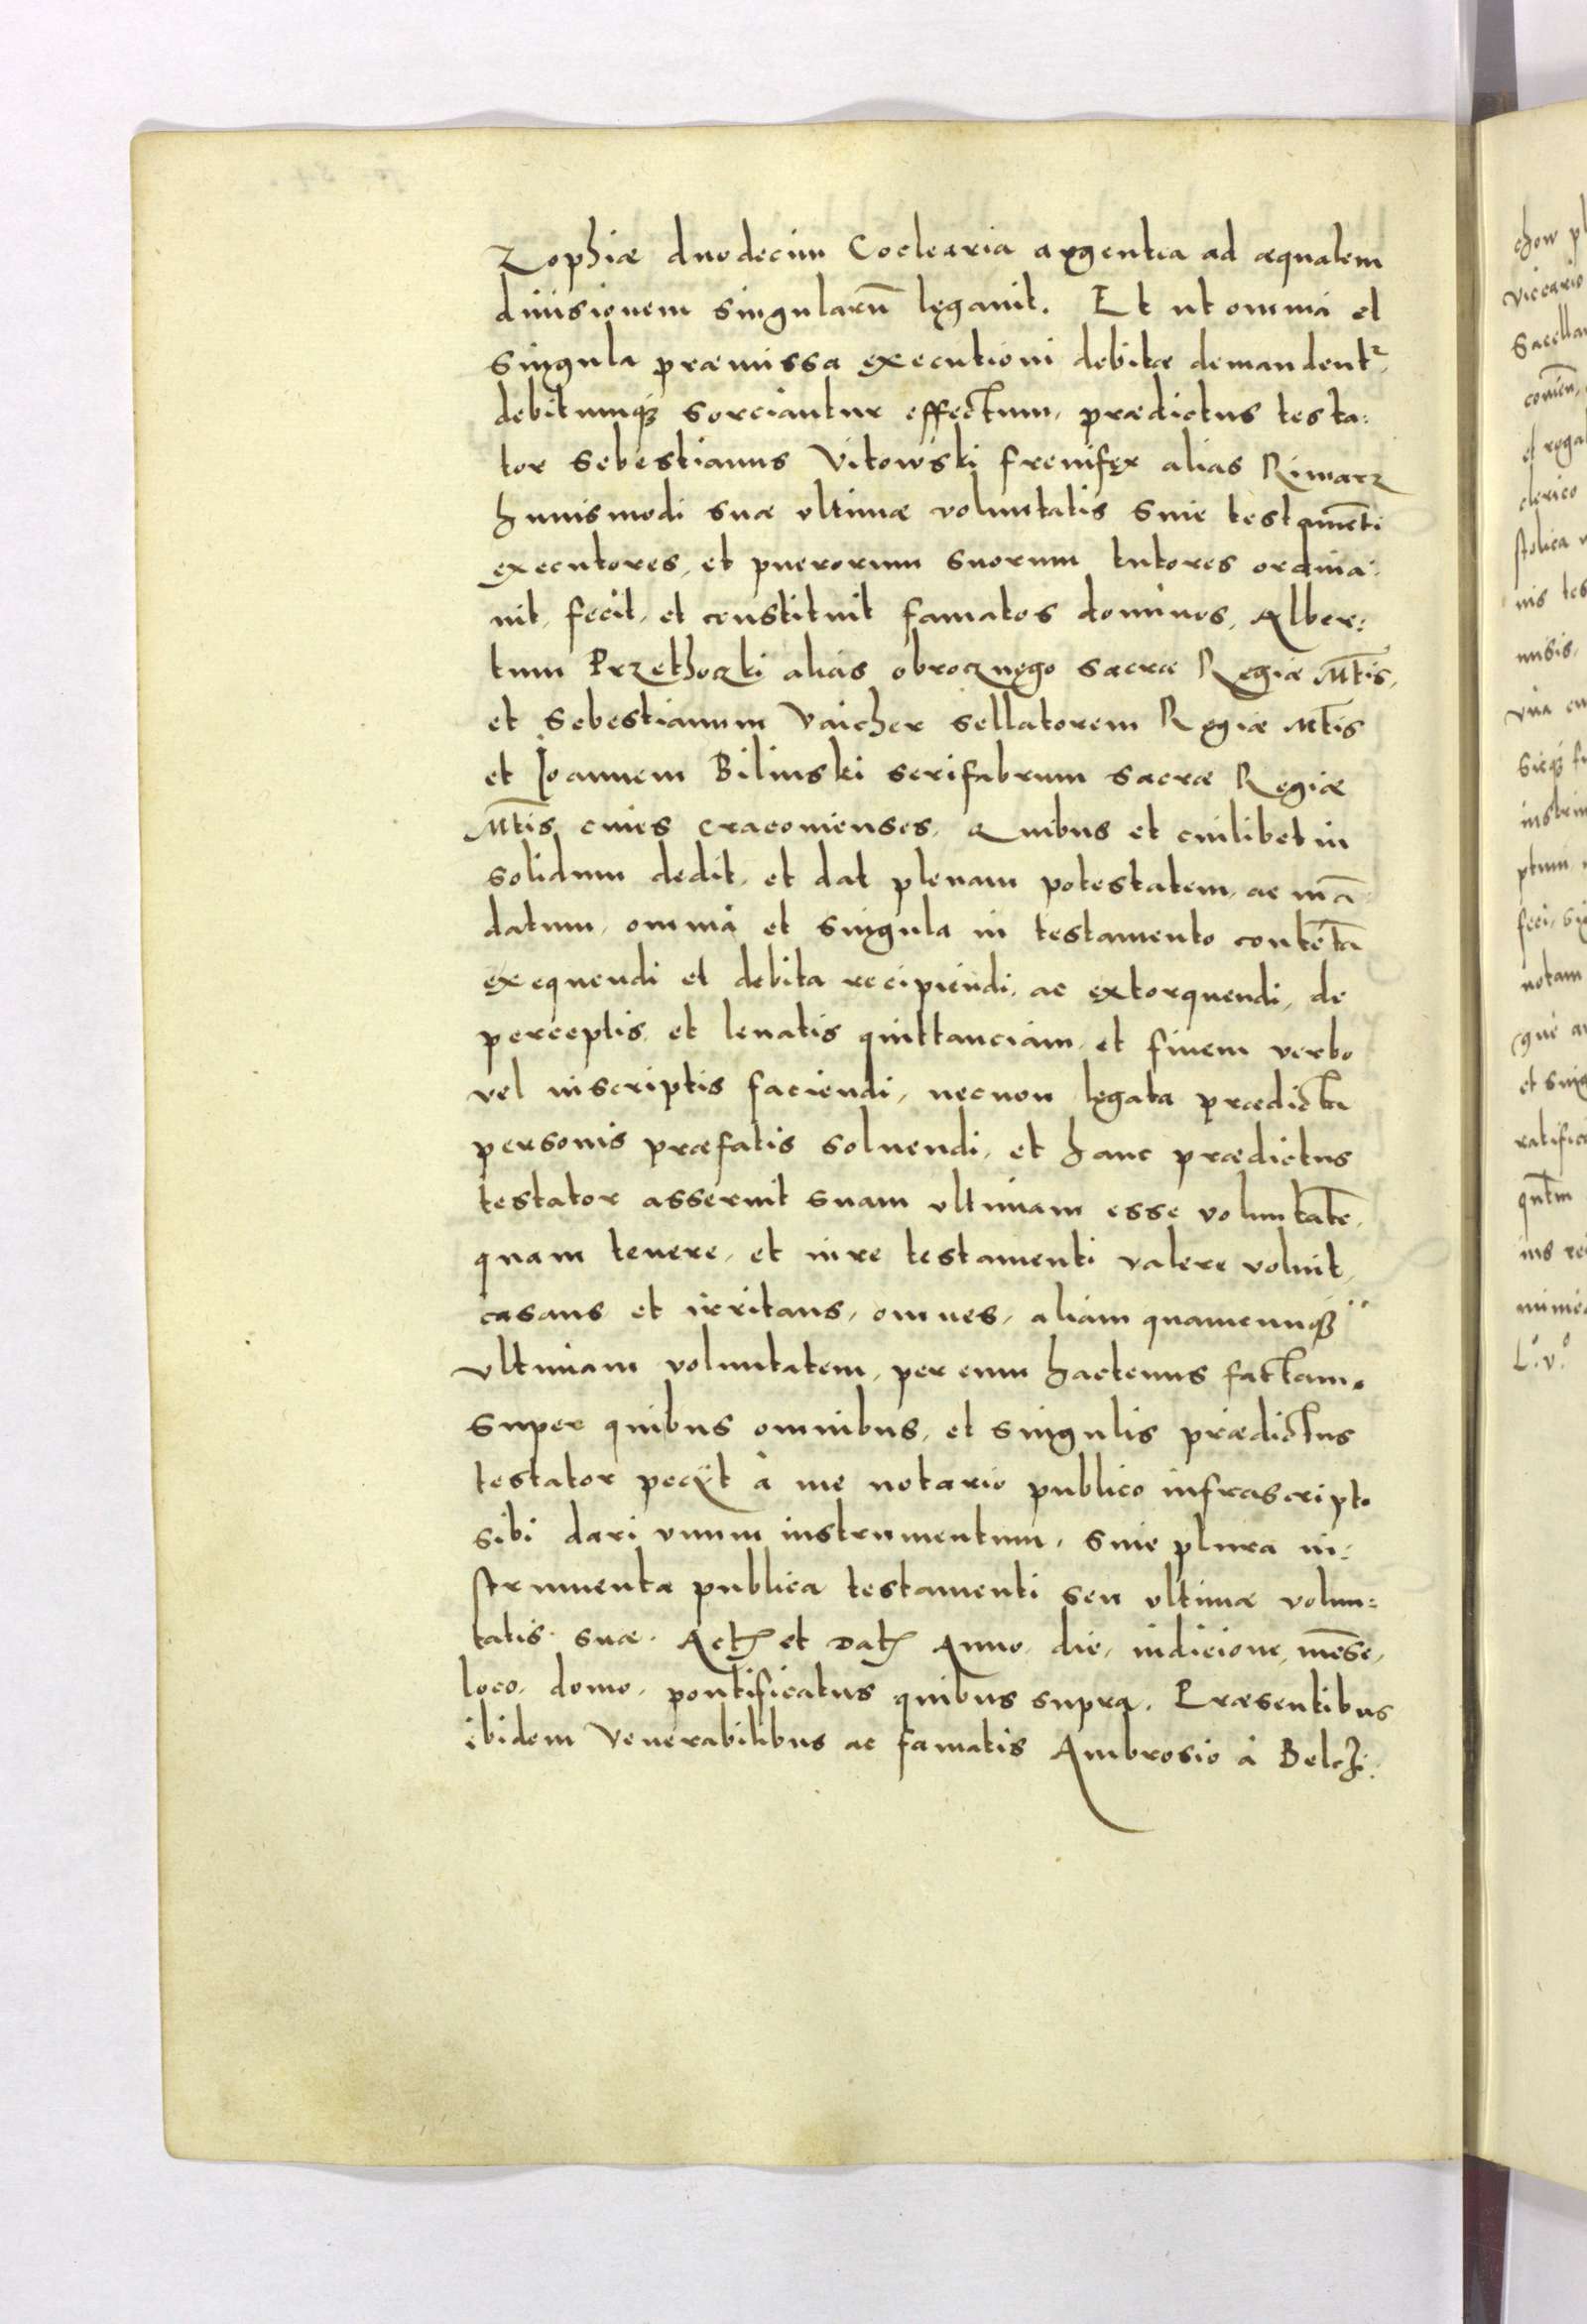 Zophiæ duodecim Coclearia argentea ad æqualem
diuisionem singularū legauit. Et ut omnia et
singula præmissa executioni debitæ demandentᷣ,
debitumqꝫ sorciantur effectum, prædictus testa:
tor Sebestianus Vitowski frenifex alias Rimarz
huiusmodi suæ vltimæ voluntatis siue testamēti
executores, et puerorum suorum tutores ordina:
uit, fecit, et constituit famatos dominos, Alber:
tum Przethoczki alias obrocznego sacræ Regiæ Mtīs,
et Sebestianum Vaicher sellatorem Regiæ Mtīs
et Ioannem Bilinski serifabrum sacræ Regiæ
Mtīs ciues cracouienses, Quibus et cuilibet in
solidum dedit, et dat plenam potestatem, ac mā
datum, omnia et singula in testamento contēta
exequendi et debita recipiendi, ac extorquendi, de
perceptis, et leuatis quittanciam, et finem verbo
vel inscriptis faciendi, necnon legata prædicta
personis præfatis soluendi, et hanc prædictus
testator asseruit suam vltimam esse voluntatē,
quam tenere, et iure testamenti valere voluit,
casans et irritans, omnes, aliam quamcunqꝫ
vltimam voluntatem, per eum hactenus factam.
Super quibus omnibus, et singulis prædictus
testator peciit à me notario publico infrascripto
sibi dari vnum instrumentum, siue plura in:
strumenta publica testamenti seu vltimæ volun:
tatis suæ. Act et Dat Anno, die, indicione, mēse,
loco, domo, pontificatus quibus supra. Præsentibus
ibidem Venerabilibus ac famatis Ambrosio à Belch:
chow
viccario
et roga
clerico
stolica
nis tes
ptum
notam
et sing
ratifica